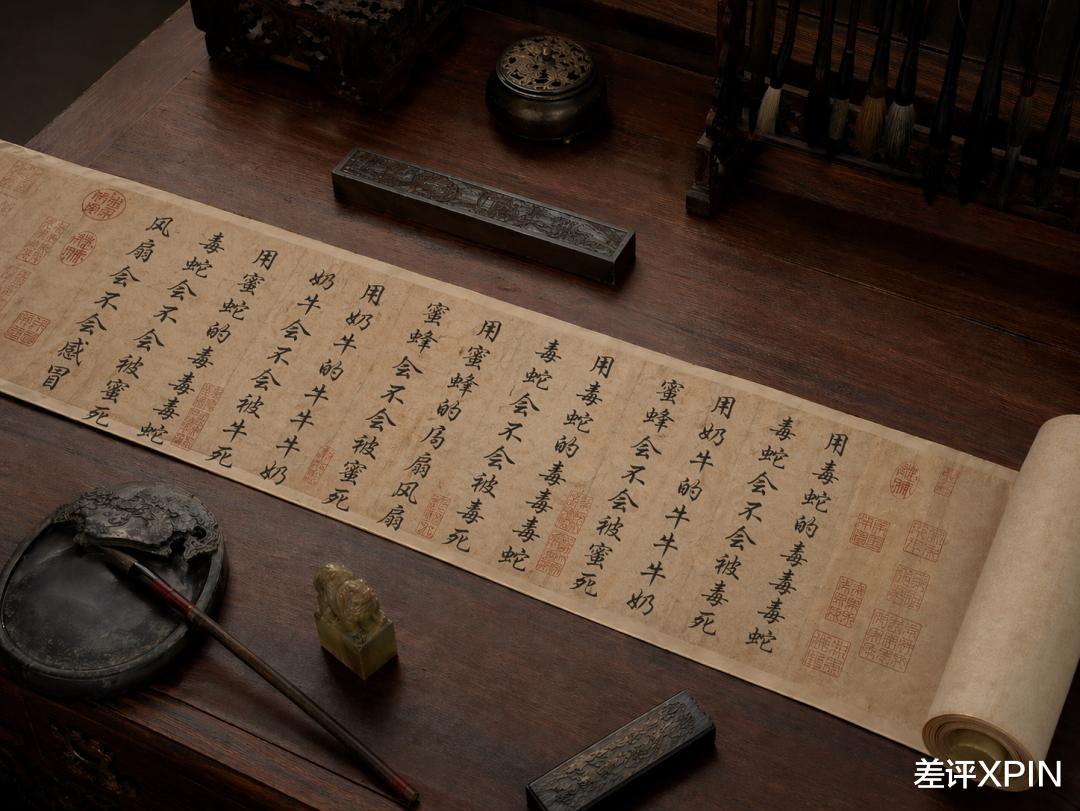 用毒蛇的毒毒毒蛇
毒蛇会不会被毒死
用奶牛的牛牛牛奶
蜜蜂会不会被蜜死
用毒蛇的毒毒毒蛇
毒蛇会不会被毒死
用蜜蜂的局扇风扇
蜜蜂会不会被蜜死
用奶牛的牛牛牛奶
奶牛会不会被牛死
用蜜蛇的毒毒毒蛇
毒蛇会不会被蜜死
风扇会不会感冒
差评XPIN